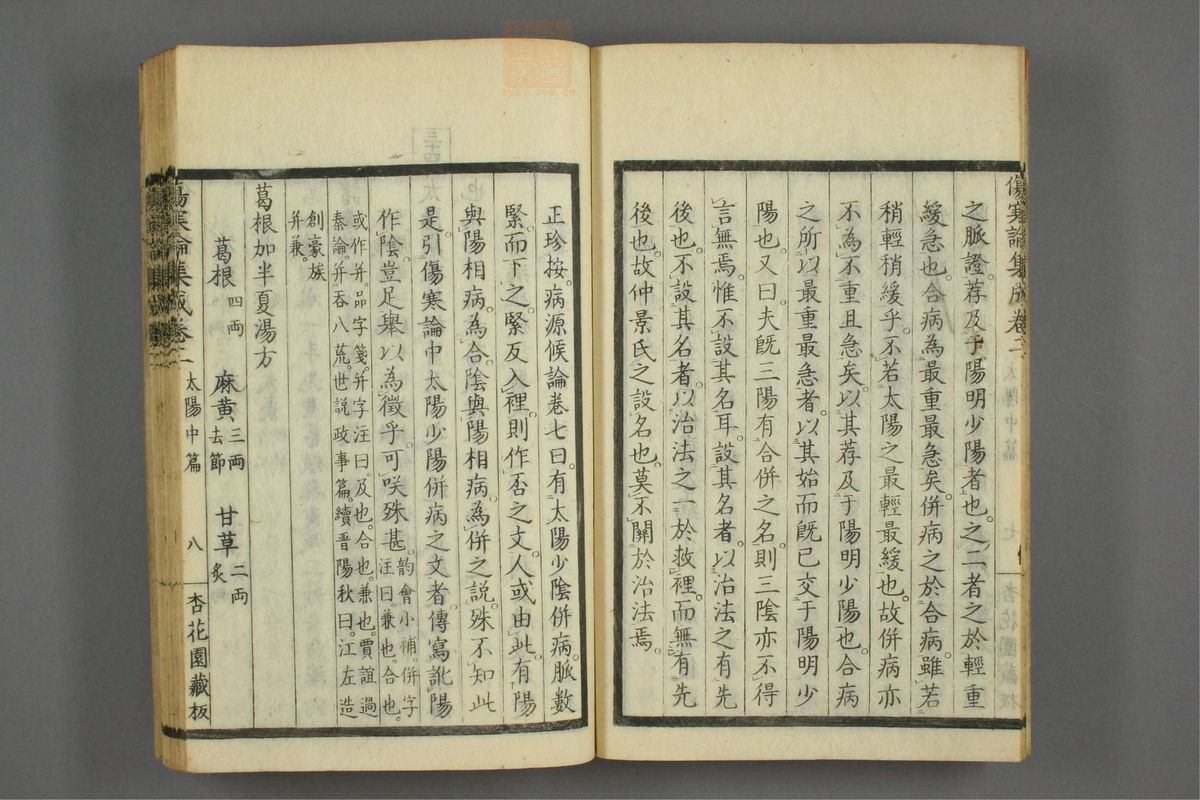 傷寒論集成卷二
之脈證荐及于陽明少陽者也。之二者之於輕重
緩急也。合病為最重最急矣。併病之於合病。雖若
稍輕稍緩乎。不若太陽之最輕最緩也。故併病亦
不為不重且急矣。以其荐及于陽明少陽也。合病
之所以最重最急者。以其始而既已交于陽明少
陽也。又曰。夫既三陽有合併之名。則三陰亦不得
言無焉。惟不設其名耳。設其名者。以治法之有先
後也。不設其名者。以治法之一於救裡。而無有先
後也。故仲景氏之設名也。莫不關於治法焉。
正珍按。病源候論卷七曰。有太陽少陰併病。脈數
緊。而下之。緊反入裡。則作否之文。人或由此。有陽
與陽相病。為合。陰與陽相病。為併之說。殊不知此
是引傷寒論中太陽少陽併病之文者。傳寫訛陽
作陰。豈足舉以為徵乎。可咲殊甚。韵會小補。併字
注曰。兼也。合也。
或作并。品字箋。并字注曰。及也。合也。兼也。賈誼過
秦論。并吞八荒。世說政事篇。續晋陽秋曰。江左造
創豪族
并兼。
葛根加半夏湯方
葛根四両 麻黄三両去節 甘草二両炙
傷寒論集成卷二 太陽中篇 八 杏花園藏板